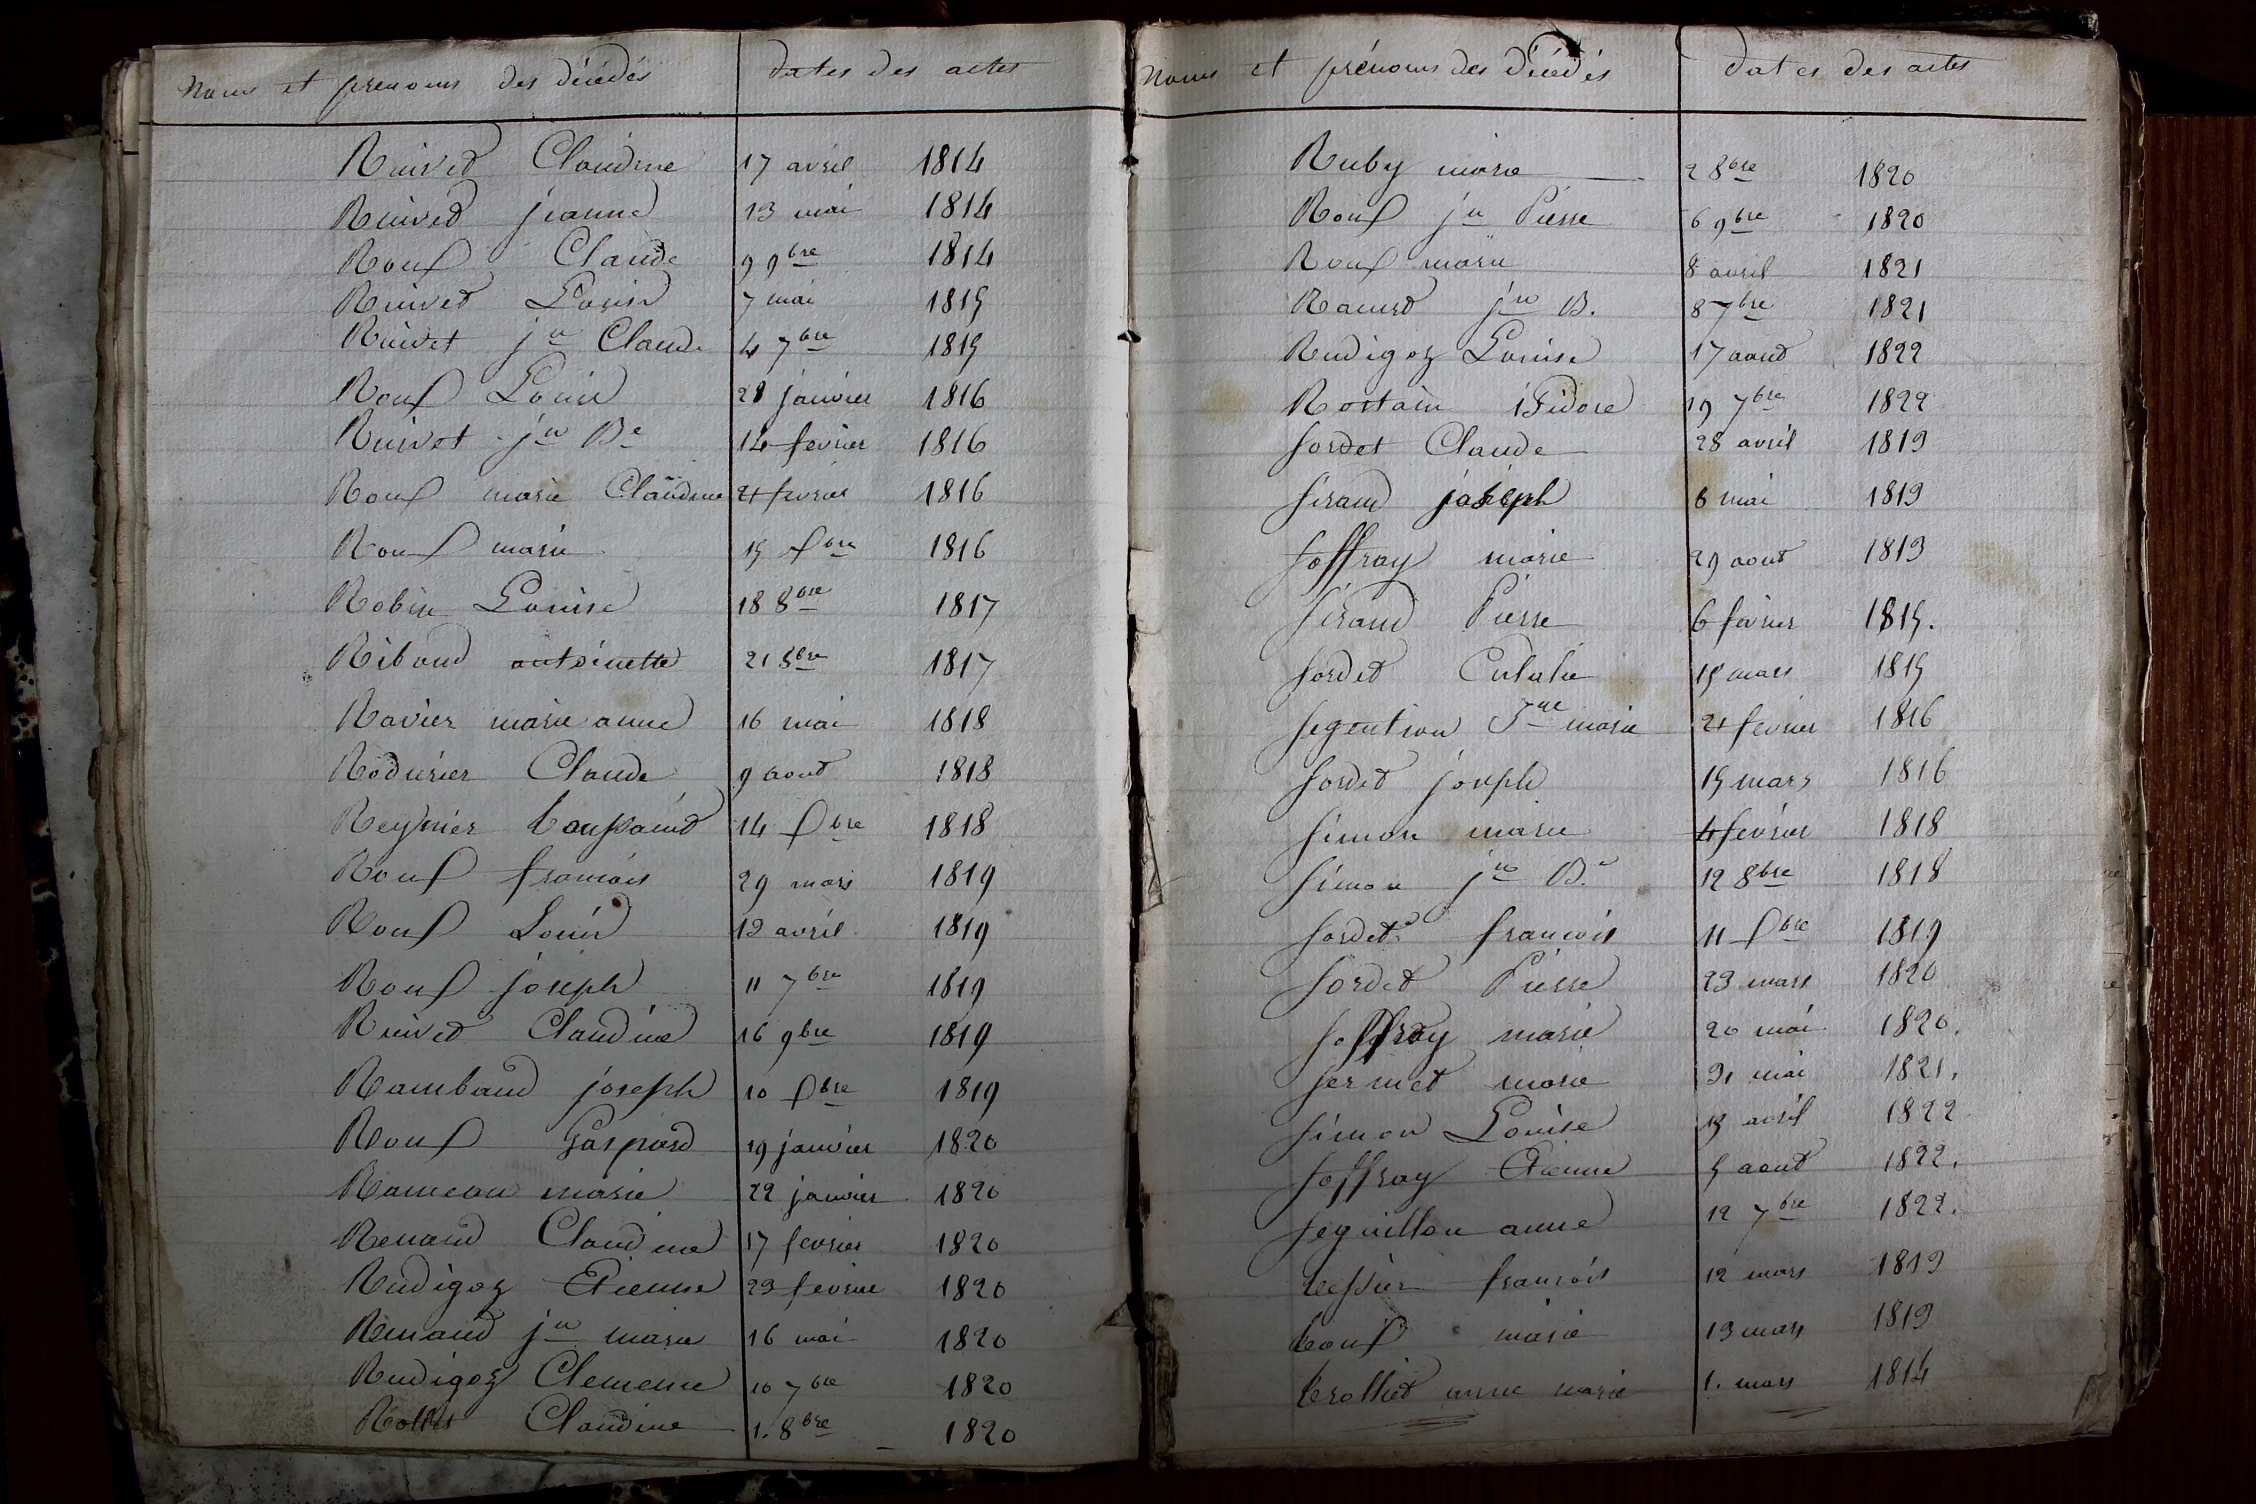 Noms et prénoms des décédés dates des actes
Ruivet Claudine 17 avril 1814
Ruivet jeanne 13 mai 1814
Roux Claude 9 9bre 1814
Ruivet Louise 7 mai 1815
Ruivet jn Claude 4 7bre 1815
Roux Louis 28 janvier 1816
Ruivet jn Bte 14 fevrier 1816
Roux marie Claudine 21 fevrier 1816
Roux marie 15 Xbre 1816
Robin Louise 18 8bre 1817
Ribaud antoinette 21 8bre 1817
Ravier marie anne 16 mai 1818
Rodurier Claude 9 aout 1818
Reynier toussaint 14 Xbre 1818
Roux francois 29 mars 1819
Roux Louis 12 avril 1819
Roux joseph 11 7bre 1819
Ruivet Claudine 16 9bre 1819
Rambaud joseph 10 Xbre 1819
Roux Gaspard 19 janvier 1820
Rameau marie 22 janvier 1820
Renaud Claudine 17 fevrier 1820
Rudigoz Etienne 23 fevrier 1820
Renaud jn marie 16 mai 1820
Rudigoz Clemence 10 7bre 1820
Claudine 1. 8bre 1820
Noms et prénoms des décédés dates des actes
Ruby marie 2 8bre 1820
Roux jn Pierre 6 9bre 1820
Roux marie 8 avril 1821
jn B. 8 7bre 1821
Rudigoz Louise 17 aout 1822
Rostain isidore 19 7bre 1822
Sordet Claude 28 avril 1813
Siraud joseph 6 mai 1813
Soffray marie 29 aout 1813
Siraud Pierre 6 fevrier 1815.
Sordet Eulalie 15 mars 1815
marie 21 fevrier 1816
Sordet joseph 15 mars 1816
Simon marie 4 fevrier 1818
Simon jn B.te 12 8bre 1818
Sordet francois 11 Xbre 1819
Sordet Pierre 23 mars 1820
Soffray marie 20 mai 1820.
Sermet marie 31 mai 1821.
Simon Louise 13 avril 1822
Soffray Etienne 5 aout 1822.
Seguillon anne 12 7bre 1822.
tessier francois 12 mars 1813
toux marie 13 mars 1813
trolliet anne marie 1. mars 1814